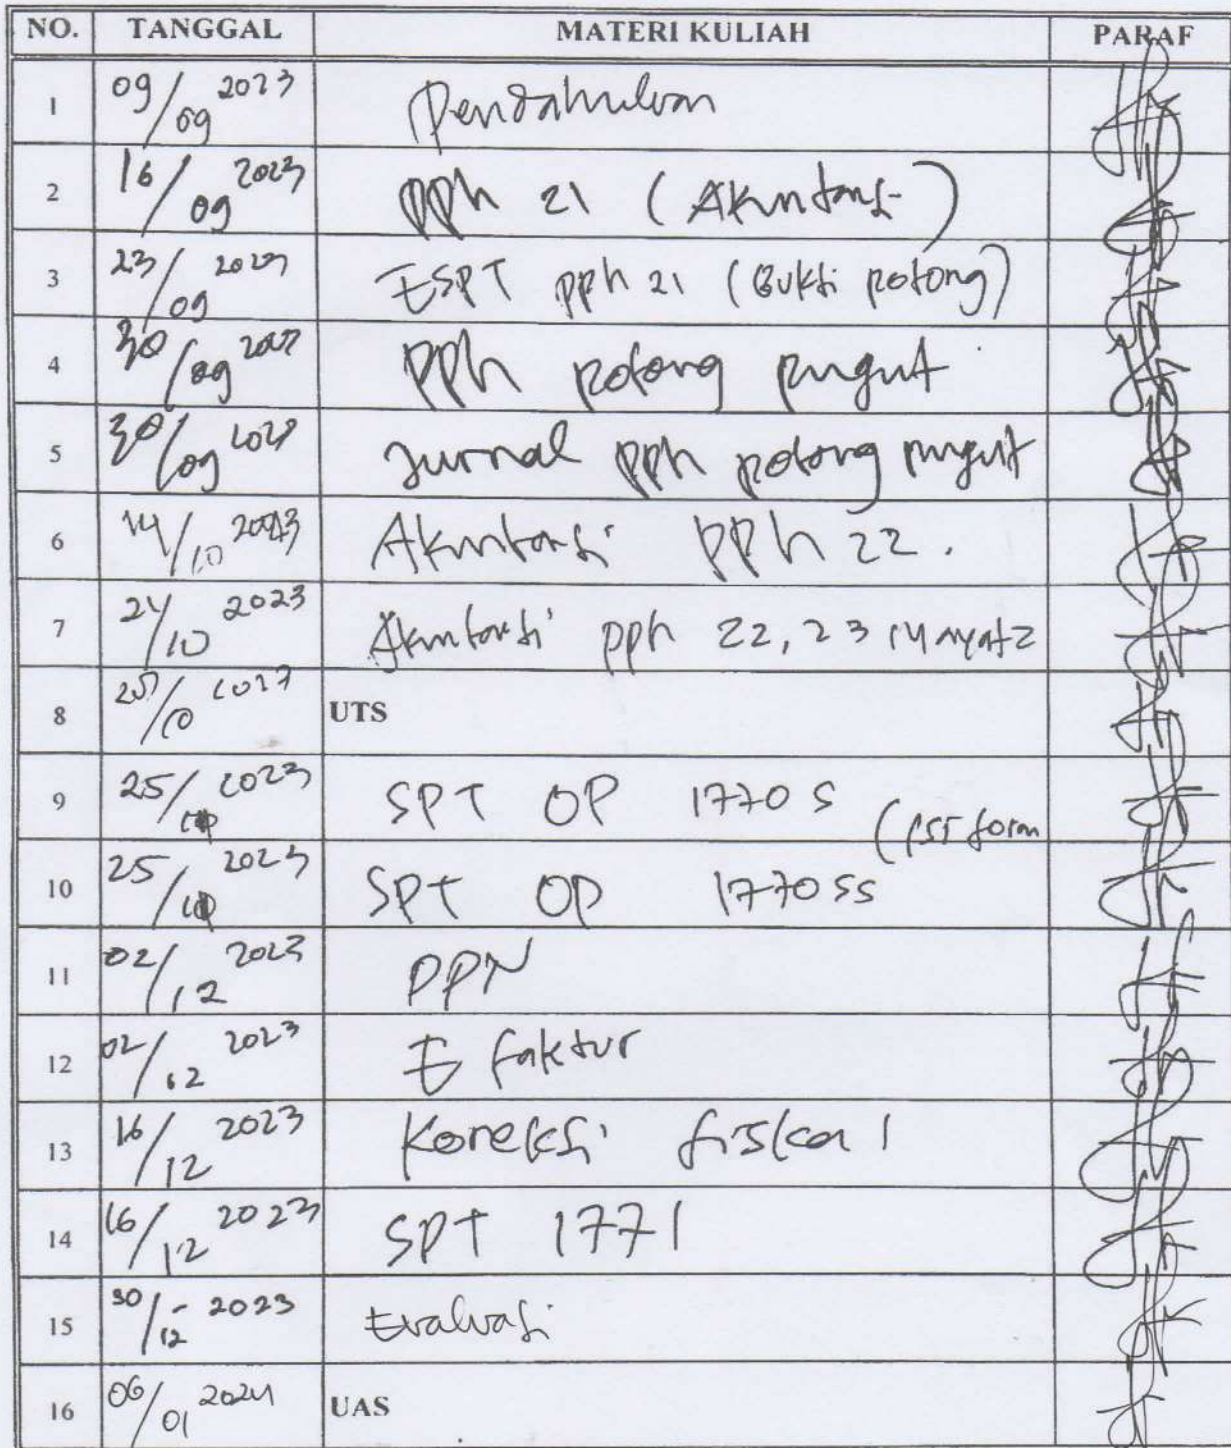 NO. TANGGAL MATERI KULIAH PARAF
1 09/09 2023 Pendahuluan
2 16/09 2023 pph 21 (Akuntansi)
3 23/09 2023 ESPT pph 21 (Bukti potong)
4 30/09 2023 pph potong pungut
5 30/09 2023 Jurnal pph potong pungut
6 14/10 2023 Akuntansi pph 22.
7 21/10 2023 Akuntansi pph 22, 23
8 /10 UTS
9 25/ 2023 SPT OP 1770 S form
10 25/ 2023 SPT OP 1770 SS
11 02/12 2023 PPN
12 02/12 2023 E faktur
13 16/12 2023 Koreksi fiskal
14 16/12 2023 SPT 1771
15 30/12 - 2023 Evaluasi
16 06/01 2024 UAS